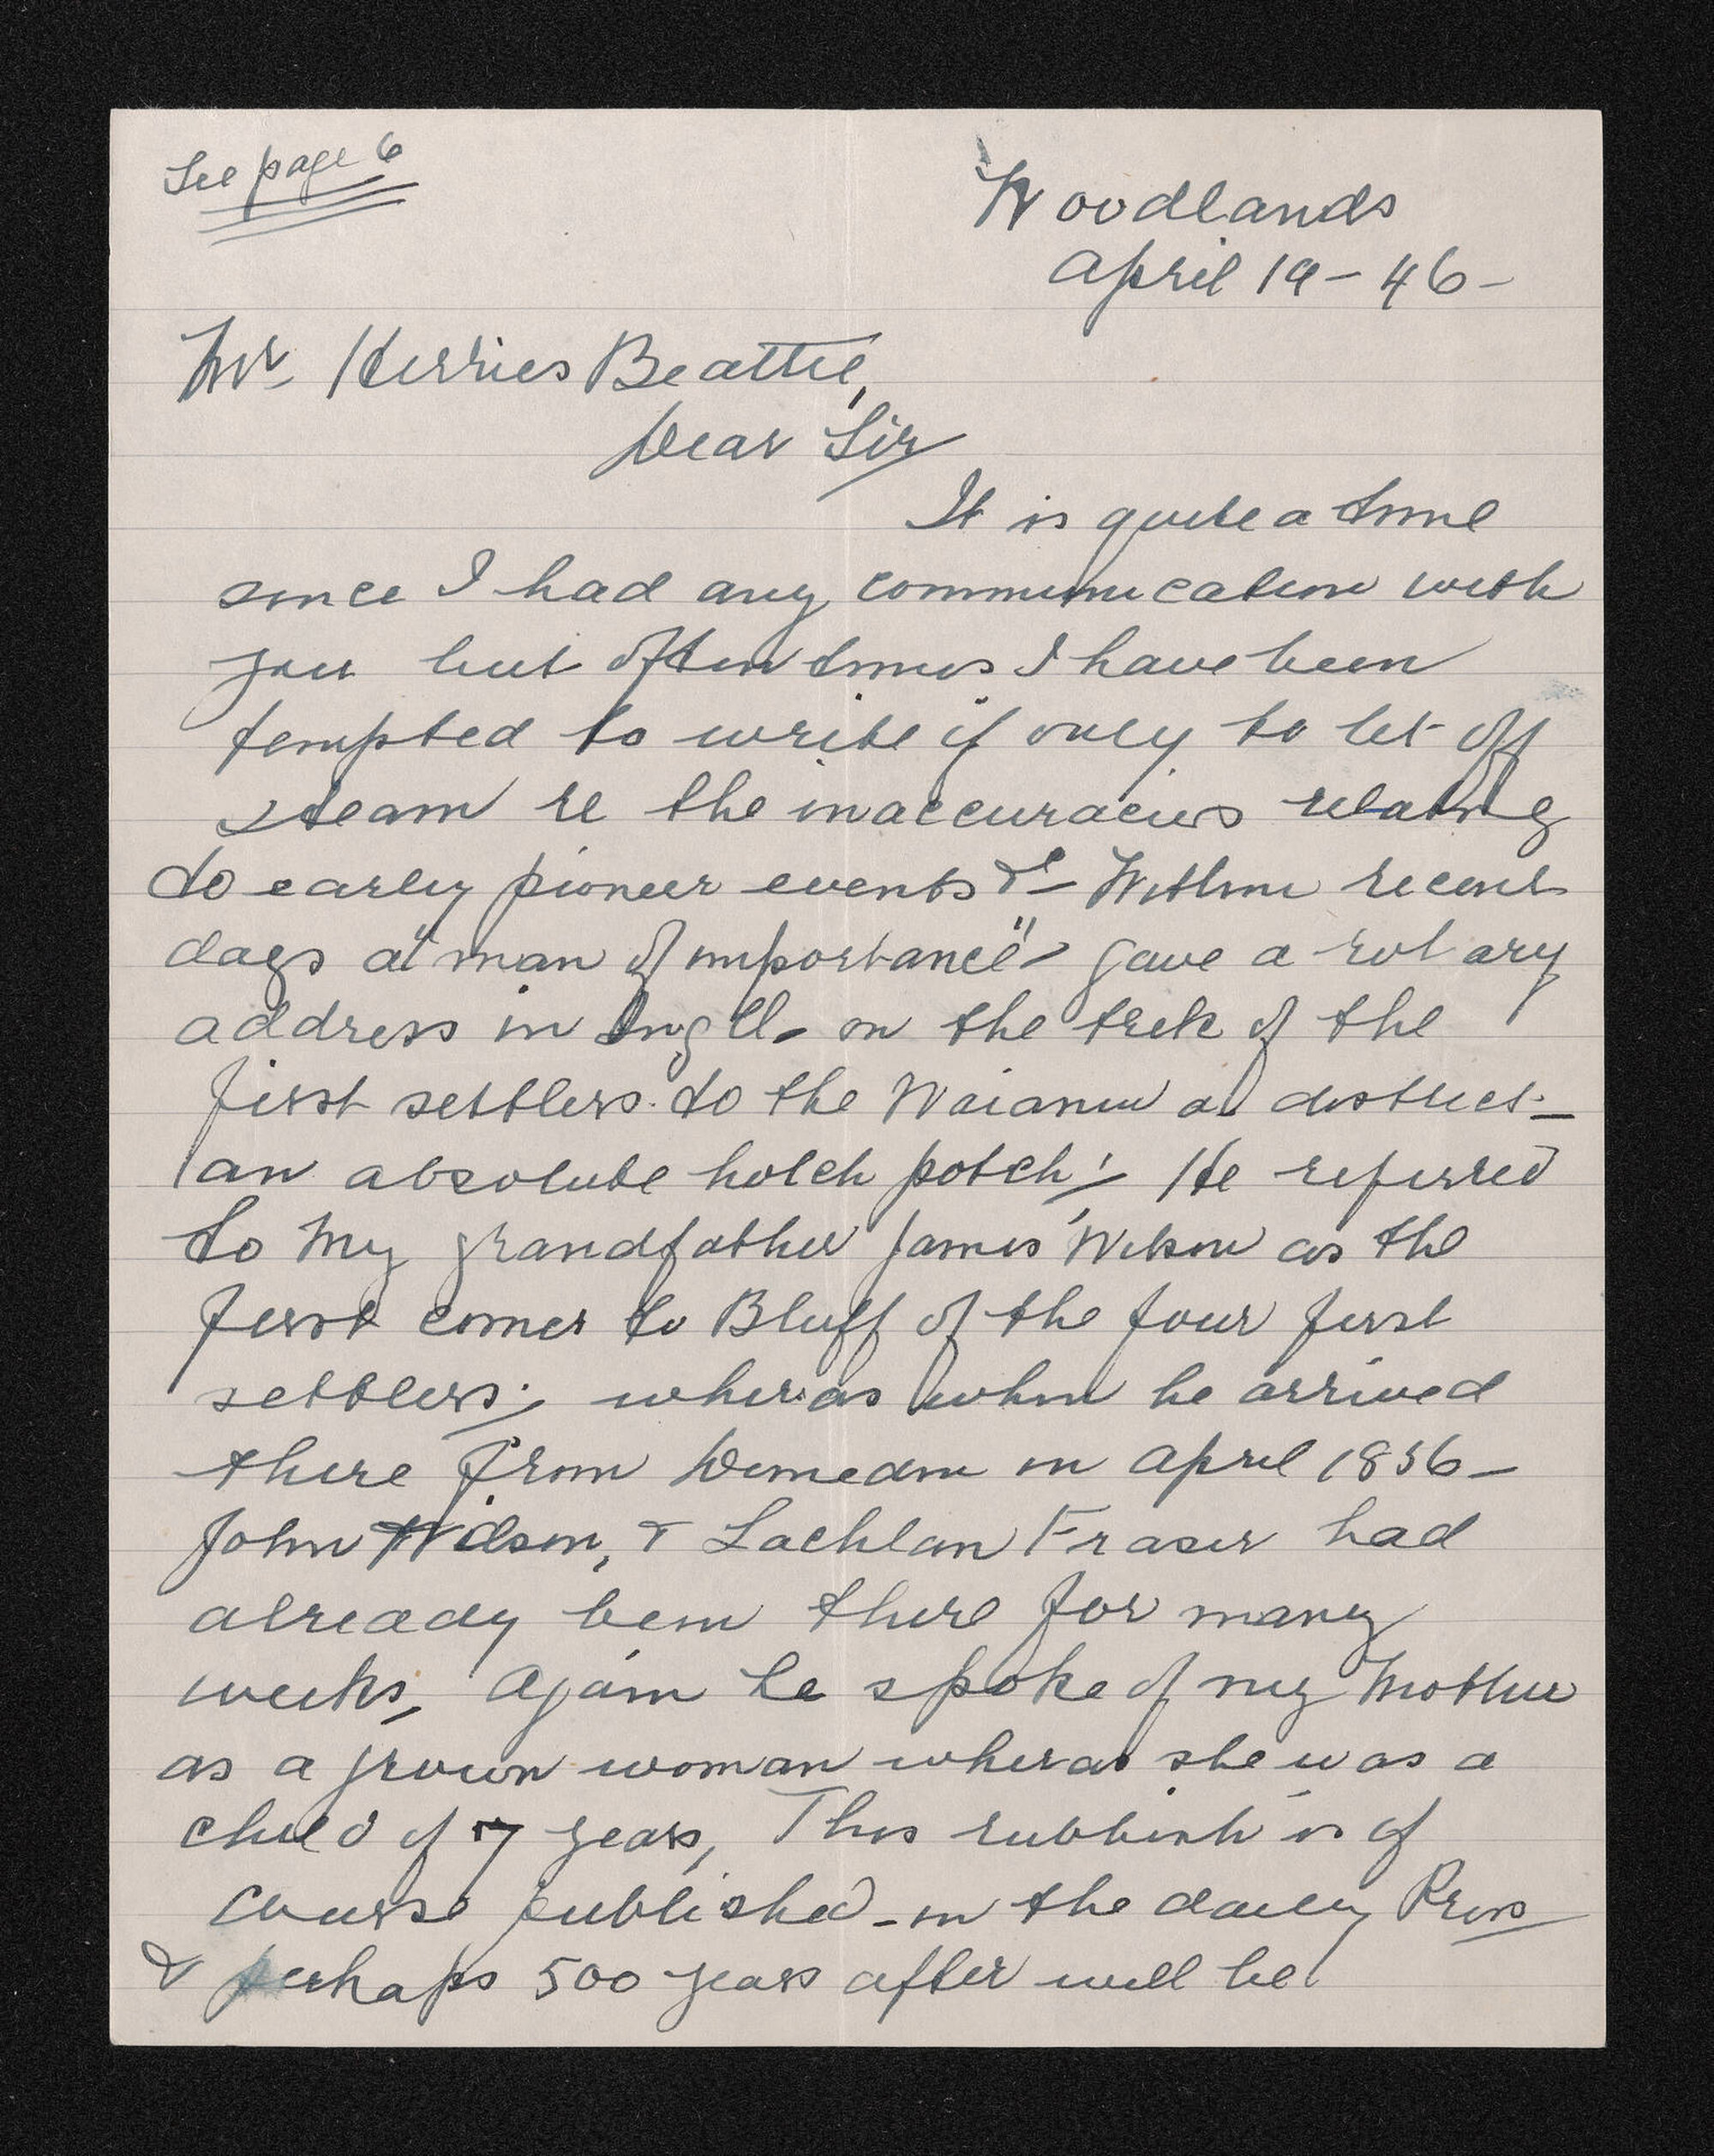 See page 6
Woodlands
April 19 - 46 -
Mr. Herries Beattie,
Dear Sir
It is quite a time
since I had any communication with
you but often times I have been
tempted to write if only to let off
steam re the inaccuracies relating
to early pioneer events &c - Within recent
days a "man of importance" - gave a rotary
address in Ingll - on the trek of the
first settlers to the Waianiwa district -
an absolute hotch potch; - He referred
to my grandfather James Wilson as the
first comer to Bluff of the four first
settlers; whereas when he arrived
there from Dunedin in April 1856 -
John Wilson, & Lachlan Fraser had
already been there for many
weeks, Again he spoke of my Mother
as a grown woman whereas she was a
child of 7 years, This rubbish is of
course published - in the daily Press
& perhaps 500 years after will be